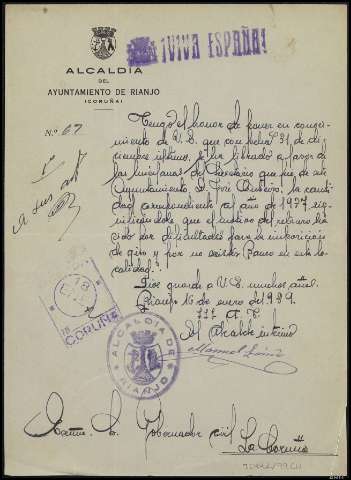 ¡VIVA ESPAÑA!
ALCALDIA
DEL
AYUNTAMIENTO DE RIANJO
(CORUÑA)
N.º 67
Tengo el honor de poner en conoci-
miento de V.E. que con fecha 31 de di-
ciembre último, se ha librado a favor de
del Secretario que fué de este
Ayuntamiento D. José la canti-
dad correspondiente al año de 1937 sig-
nificandole que el motivo del retraso ha
sido por dificultades para la imposición
de giro y por no existir Banco en esta lo-
calidad.
Dios guarde a V.E. muchos años.
Rianjo 16 de enero de 1939.
III A. T.
El Alcalde interino
Manuel
A sus
18
ENE
CORUÑA
ALCALDIA DE
RIANJO
Excmo. Sr. Gobernador civil
La Coruña